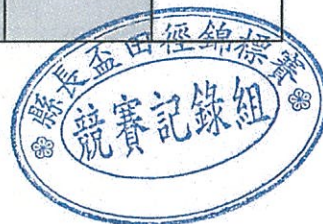 縣長盃田徑錦標賽
競賽記錄組